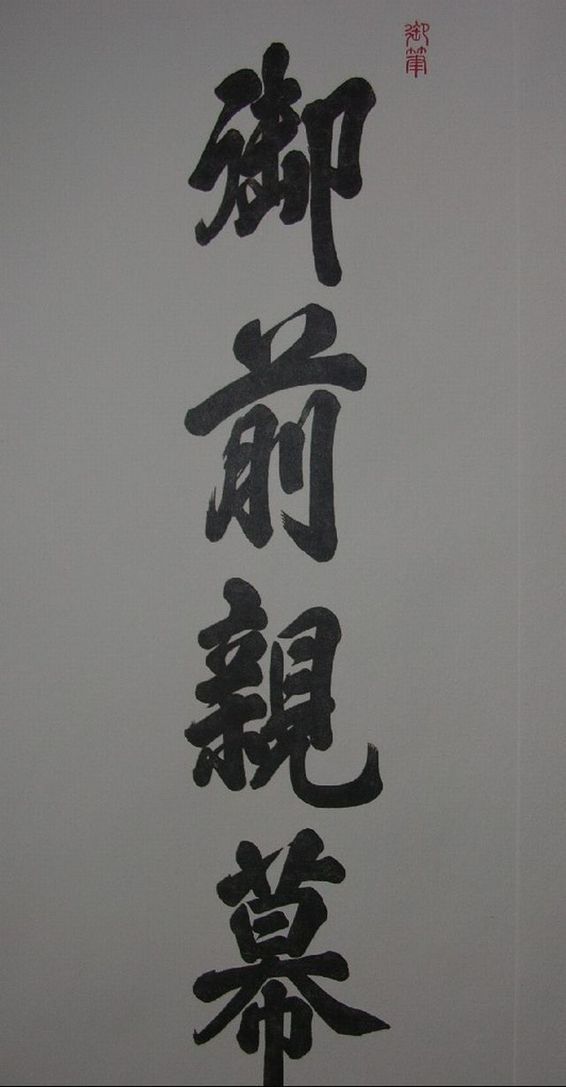 御筆
御前親幕